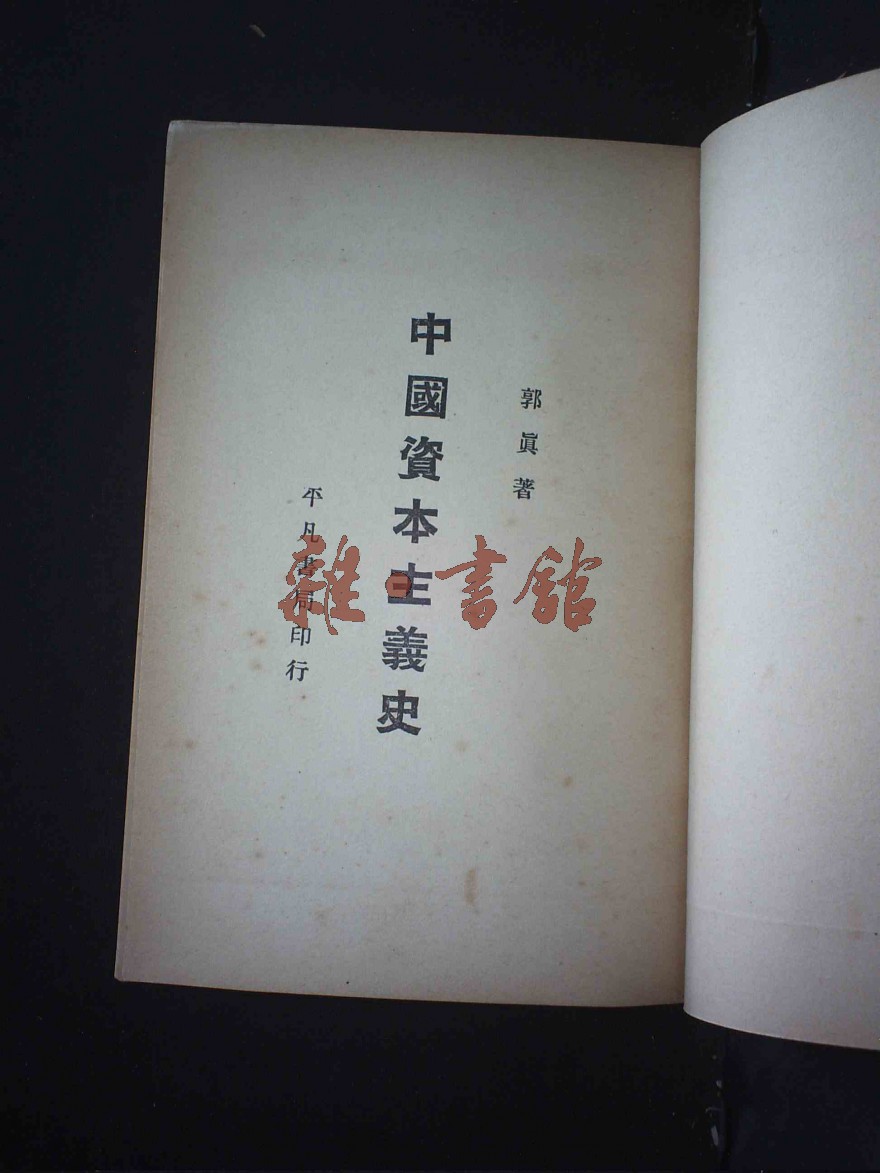 郭眞著
中國資本主義史
平凡書局印行
雜·書館